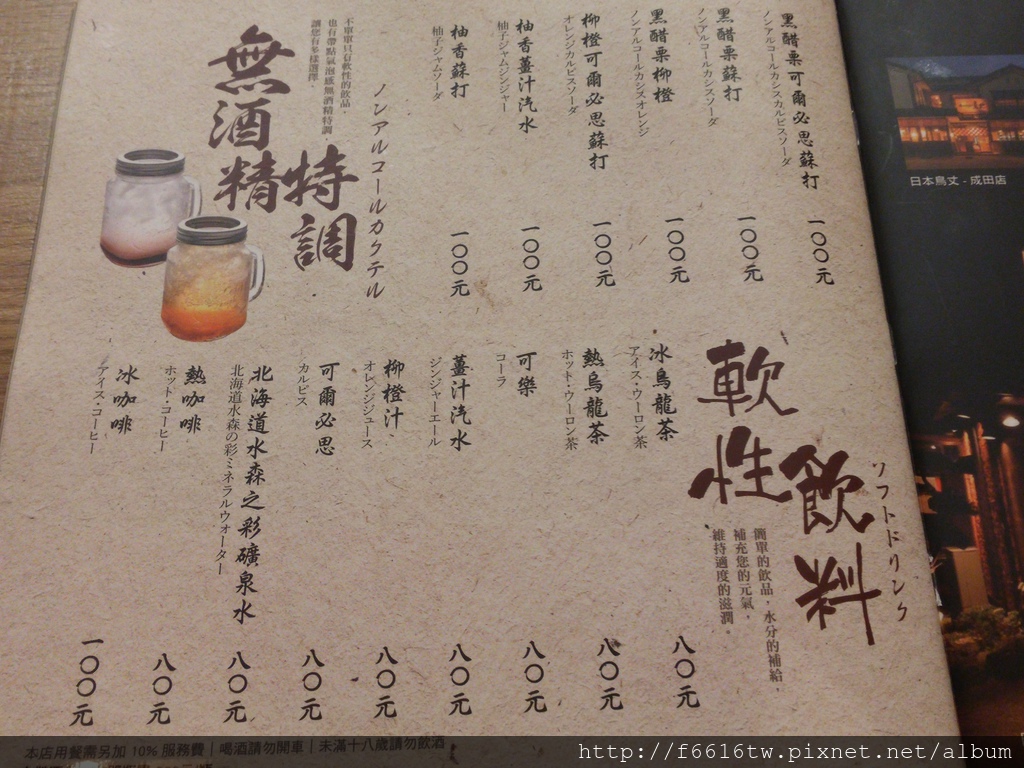 無酒精特調
ノンアルコールカクテル
不單單只有軟性的飲品，
也有帶點氣泡感無酒精特調
讓您有多樣選擇。
黑醋栗可爾必思蘇打
ノンアルコールカシスカルピスソーダ
一〇〇元
黑醋栗蘇打
ノンアルコールカシスソーダ
一〇〇元
黑醋栗柳橙
ノンアルコールカシスオレンジ
一〇〇元
柳橙可爾必思蘇打
オレンジカルピスソーダ
一〇〇元
柚香薑汁汽水
柚子ジャムジンジャー
一〇〇元
柚香蘇打
柚子ジャムソーダ
一〇〇元
軟性飲料
ソフトドリンク
簡單的飲品，水分的補給，
補充您的元氣，
維持適度的滋潤。
冰烏龍茶
アイス・ウーロン茶
八〇元
熱烏龍茶
ホット・ウーロン茶
八〇元
可樂
コーラ
八〇元
薑汁汽水
ジンジャーエール
八〇元
柳橙汁
オレンジジュース
八〇元
可爾必思
カルピス
八〇元
北海道水森之彩礦泉水
北海道水森の彩ミネラルウォーター
八〇元
熱咖啡
ホット・コーヒー
八〇元
冰咖啡
アイス・コーヒー
一〇〇元
本店用餐需另加 10% 服務費｜喝酒請勿開車｜未滿十八歲請勿飲酒
日本鳥丈 - 成田店
http://f6616tw.pixnet.net/album